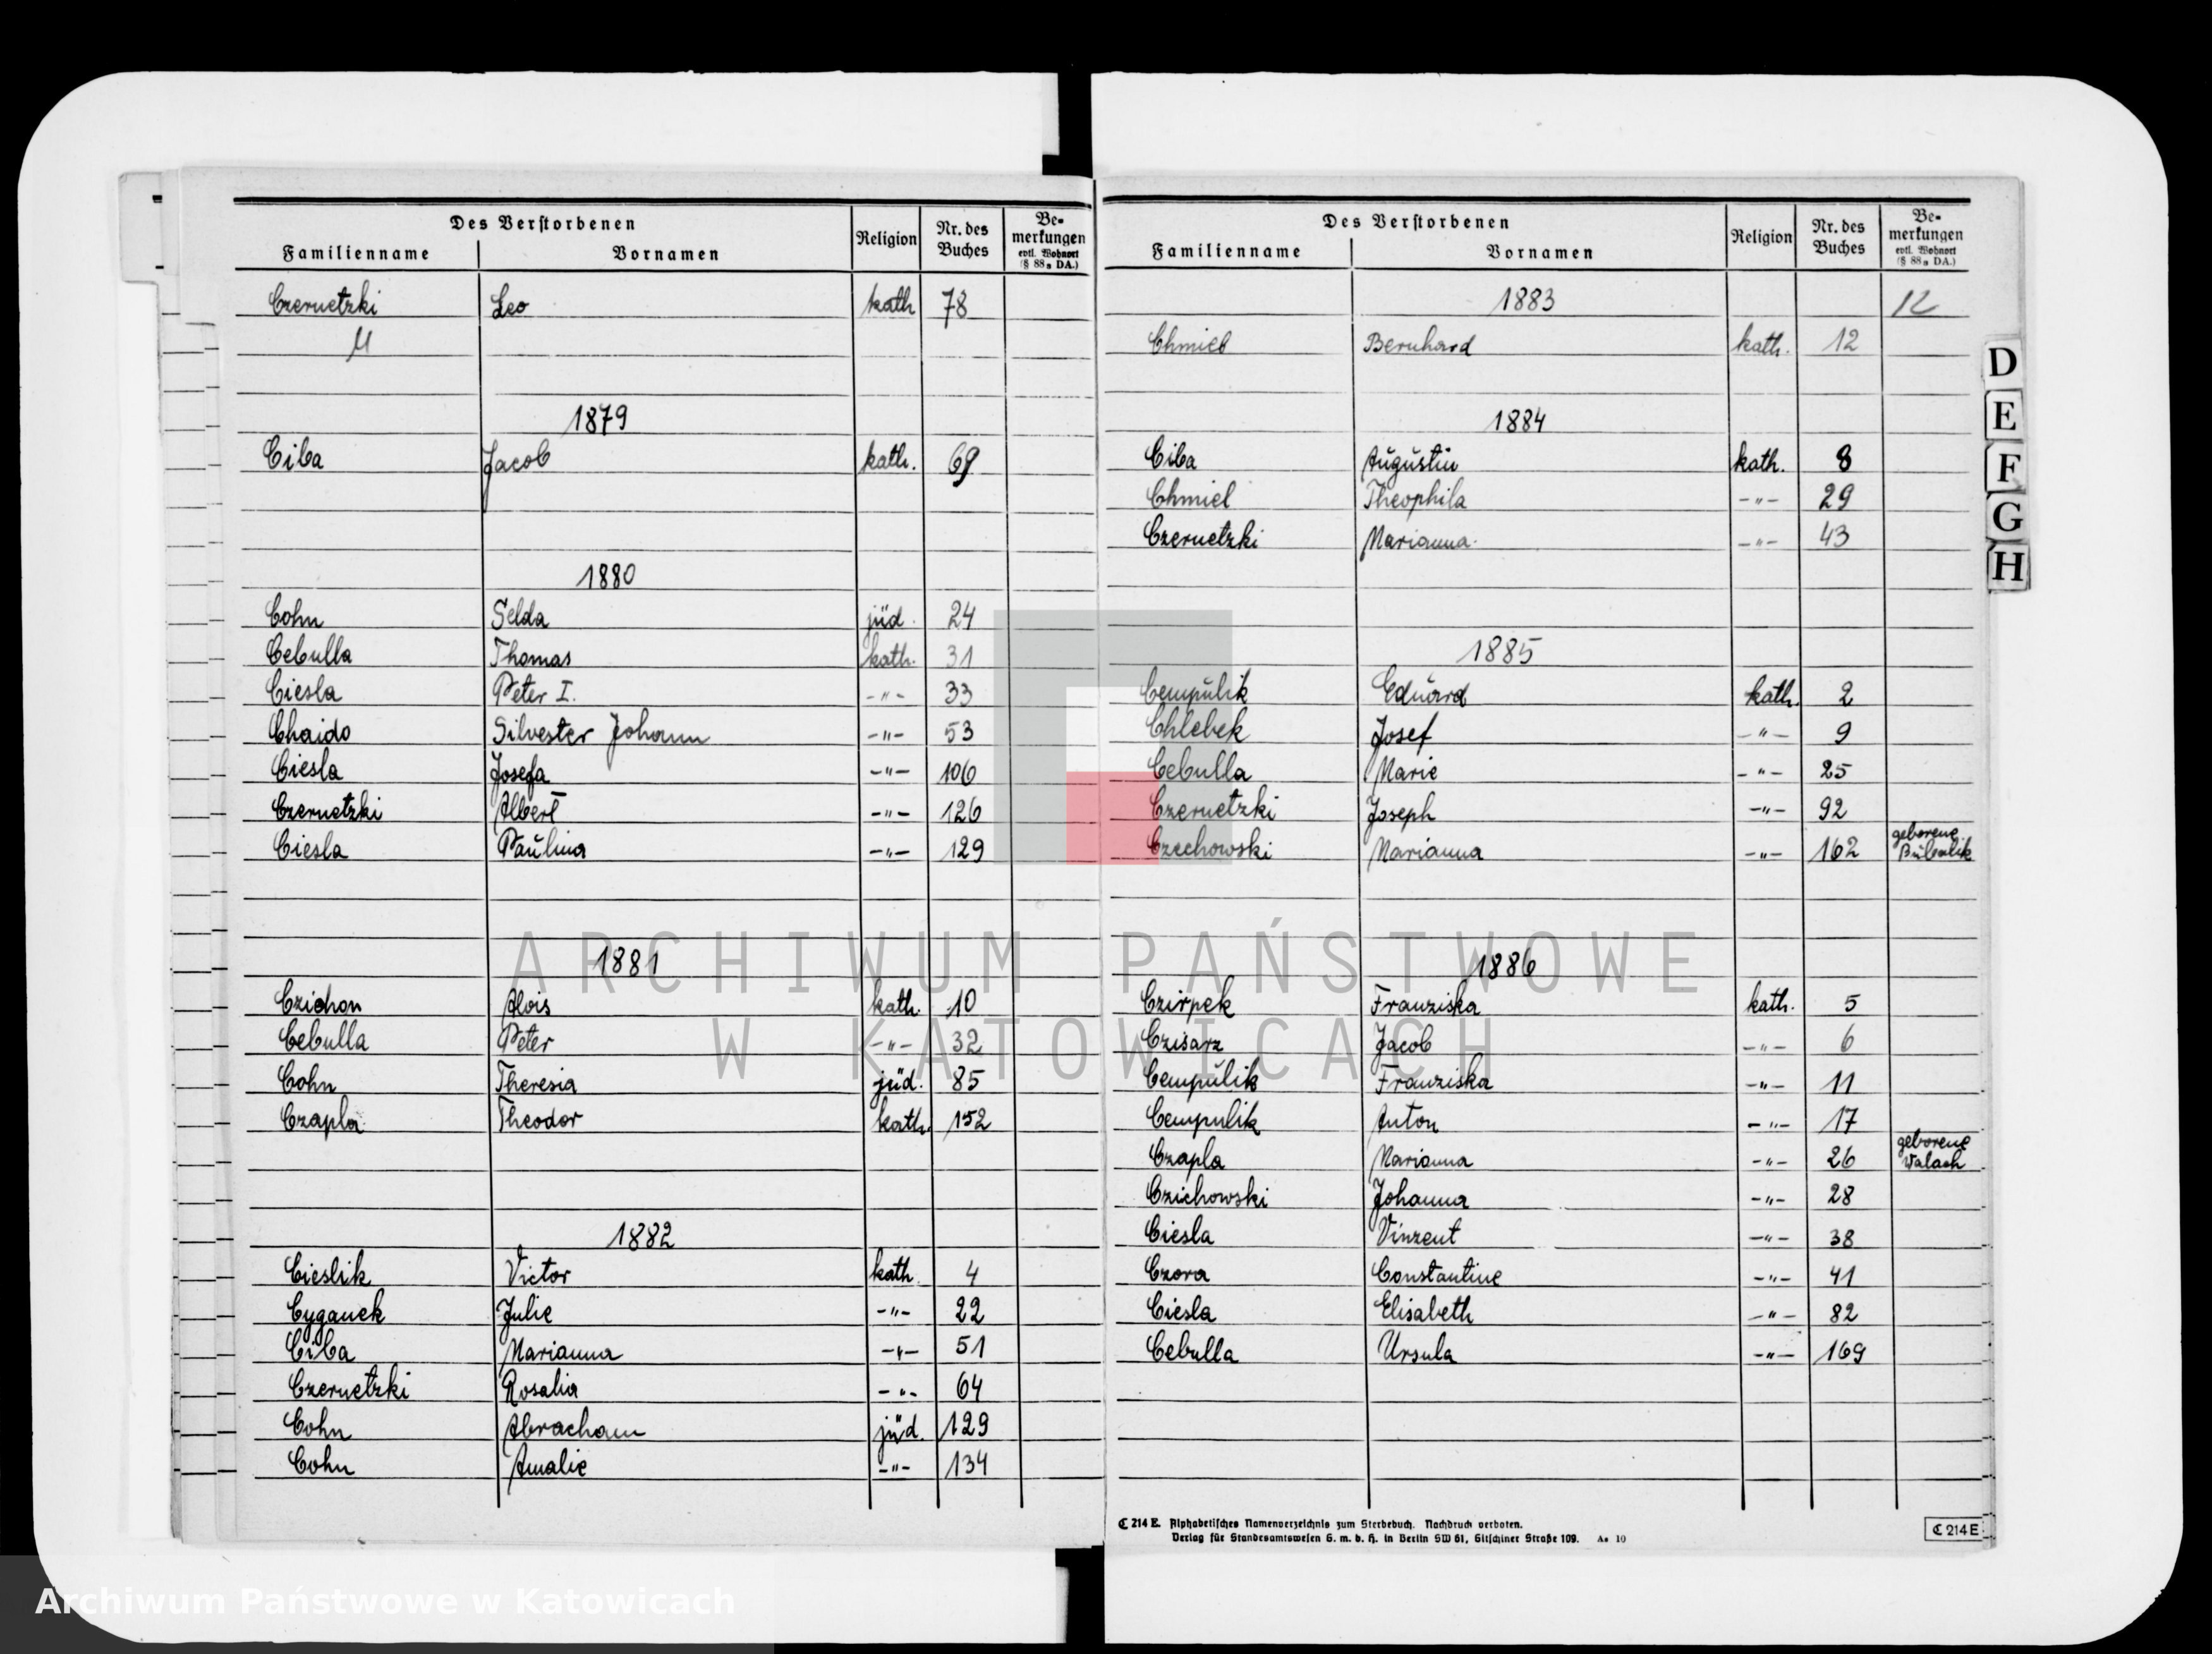 Des Verstorbenen
Familienname Vornamen Religion Nr. des Buches Bemerkungen evtl. Wohnort (§ 88a DA.)
Czernetzki Leo kath 78
1879
Ciba Jacob kath. 69
1880
Cohn Selda jüd. 24
Cebulla Thomas kath. 31
Ciesla Peter I. -"- 33
Chaido Silvester Johann -"- 53
Ciesla Josefa -"- 106
Czernetzki Albert -"- 126
Ciesla Paulina -"- 129
1881
Czichon Alois kath. 10
Cebulla Peter -"- 32
Cohn Theresia jüd. 85
Czapla Theodor kath. 152
1882
Cieslik Victor kath. 4
Cyganek Julie -"- 22
Ciba Marianna -"- 51
Czernetzki Rosalia -"- 64
Cohn Abracham jüd. 129
Cohn Amalie -"- 134
Des Verstorbenen
Familienname Vornamen Religion Nr. des Buches Bemerkungen evtl. Wohnort (§ 88a DA.)
1883 12
Chmiel Bernhard kath. 12
1884
Ciba Augustin kath. 8
Chmiel Theophila -"- 29
Czernetzki Marianna -"- 43
1885
Cempulik Eduard kath. 2
Chlebek Josef -"- 9
Cebulla Marie -"- 25
Czernetzki Joseph -"- 92
Czechowski Marianna -"- 162 geborene Bubalik
1886
Czirpek Franziska kath. 5
Czisarz Jacob -"- 6
Cempulik Franziska -"- 11
Cempulik Anton -"- 17
Czapla Marianna -"- 26 geborene Walach
Czichowski Johanna -"- 28
Ciesla Vinzent -"- 38
Czora Constantine -"- 41
Ciesla Elisabeth -"- 82
Cebulla Ursula -"- 169
C 214 E. Alphabetisches Namenverzeichnis zum Sterbebuch. Nachdruck verboten.
Verlag für Standesamtswesen G. m. b. H. in Berlin SW 61, Gitschiner Straße 109. As 10
C 214 E
D
E
F
G
H
ARCHIWUM PAŃSTWOWE
W KATOWICACH
Archiwum Państwowe w Katowicach